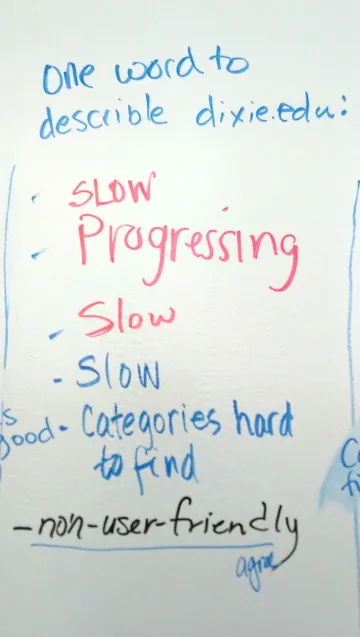 One word to
describle dixie.edu:
- SLOW
- Progressing
- Slow
- Slow
good - Categories hard
to find
- non-user-friendly
agree